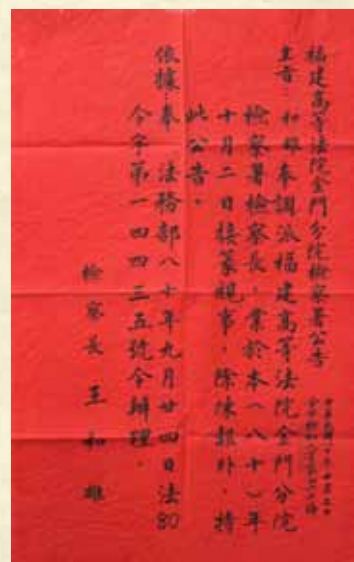 福建高等法院金門分院檢察署公告
主旨:和雄奉調派福建高等法院金門分院
檢察署檢察長,業於本(八十)年
十月二日接篆視事,除陳報外,特
此公告。
依據:奉 法務部八十年九月廿四日法80
令字第一四四三五號令辦理。
檢察長 王和雄